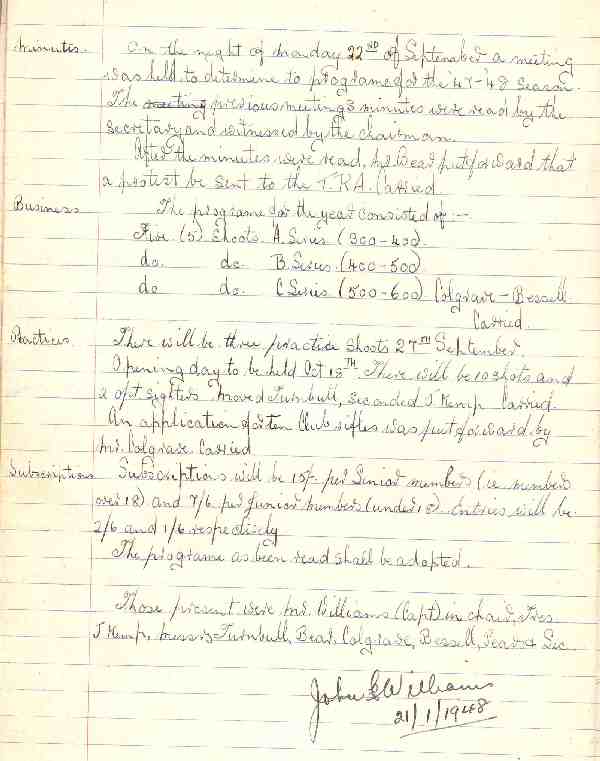 Minutes. On the night of Monday 22ND of September a meeting
was held to determine to programe for the 47-'48 season.
The meeting previous meeting's minutes were read by the
secretary and witnessed by the chairman.
After the minutes were read, Mr Bear put forward that
a protest be sent to the T.R.A. Carried.
Business The programe for the year consisted of:-
Five (5) Shoots A. Series (300-400).
do. do. B. Series. (400-500)
do do. C Series (500-600) Colgrave-Bessell.
Carried.
Practices There will be three practice shoots 27TH September.
Opening day to be held Oct 18TH. There will be 10 shots and
2 opt sighters. Moved Turnbull, seconded J Kemp Carried.
An application for ten Club rifles was put forward by
Mr. Colgrave. Carried
Subscriptions Subscriptions will be 15/- per Senior members (ie members
over 18) and 7/6 per junior members (under 18). Entries will be
2/6 and 1/6 respectively
The programe as been read shall be adopted.
Those present were Mr. Williams (Capt) in chair, Pres
J Kemp, Messrs Turnbull, Bear, Colgrave, Bessell, & Sec.
John Williams
21/1/1948